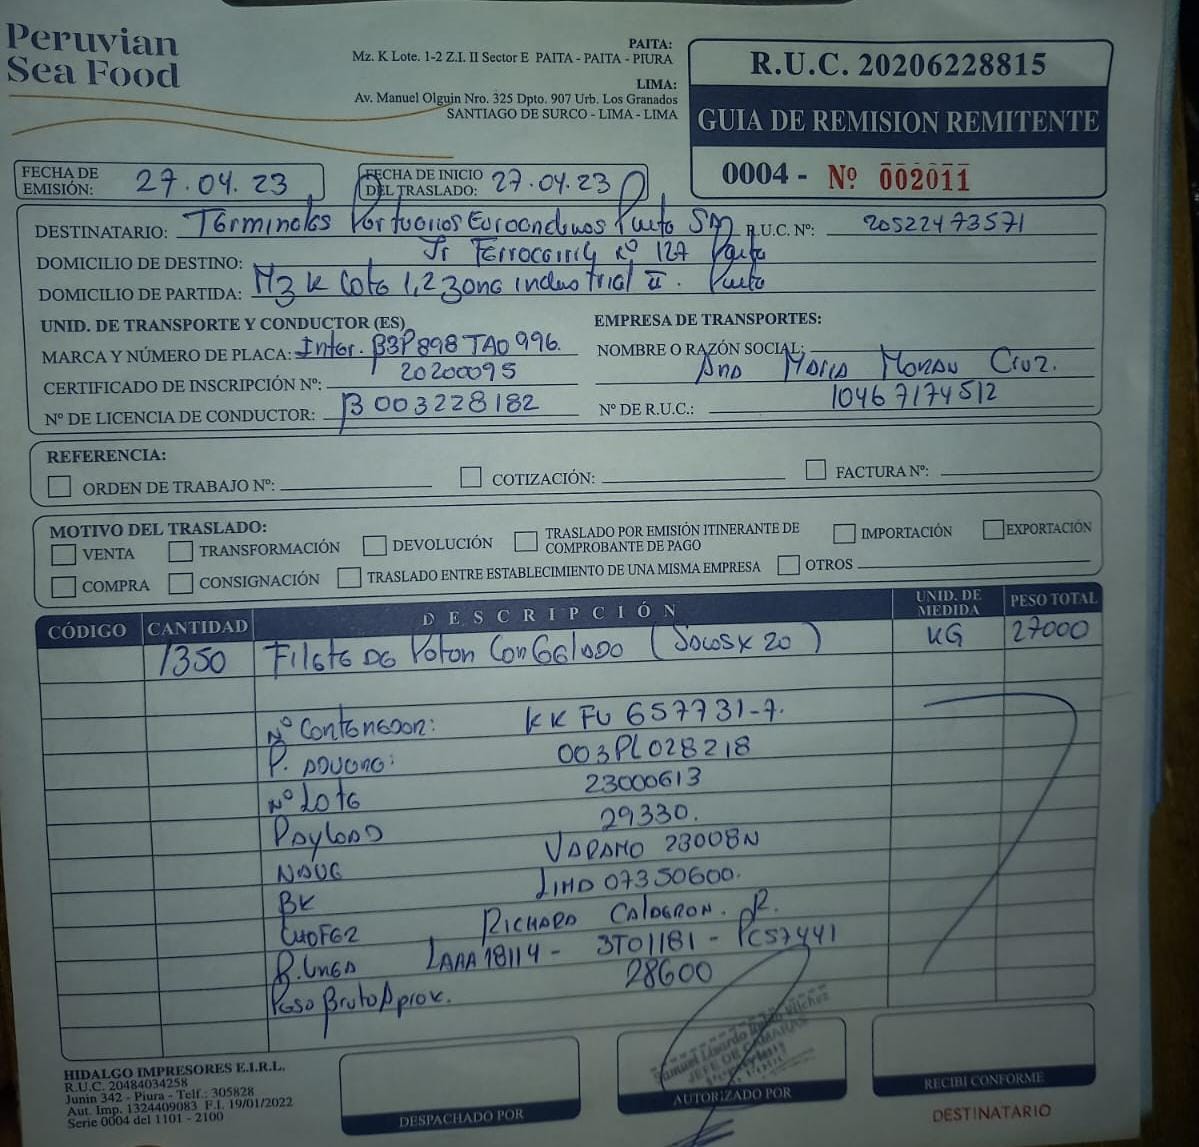 Peruvian
Sea Food
PAITA:
Mz. K Lote. 1-2 Z.I. II Sector E PAITA - PAITA - PIURA
LIMA:
Av. Manuel Olguin Nro. 325 Dpto. 907 Urb. Los Granados
SANTIAGO DE SURCO - LIMA - LIMA
R.U.C. 20206228815
GUIA DE REMISION REMITENTE
0004 - Nº 002011
FECHA DE EMISIÓN: 27.04.23
FECHA DE INICIO DEL TRASLADO: 27.04.23
DESTINATARIO: Terminales Portuarios Euroandinos Paita SA R.U.C. Nº: 20522473571
DOMICILIO DE DESTINO: Jr Ferrocarril nº 127 Paita
DOMICILIO DE PARTIDA: Mz K Lote 1,2 zona industrial II. Paita
UNID. DE TRANSPORTE Y CONDUCTOR (ES) EMPRESA DE TRANSPORTES:
MARCA Y NÚMERO DE PLACA: Inter. B3P898 TAO996. NOMBRE O RAZÓN SOCIAL: Ana Maria Moran Cruz.
CERTIFICADO DE INSCRIPCIÓN Nº: 20200095
Nº DE LICENCIA DE CONDUCTOR: B003228182 Nº DE R.U.C.: 10467174512
REFERENCIA:
ORDEN DE TRABAJO Nº: COTIZACIÓN: FACTURA Nº:
MOTIVO DEL TRASLADO:
VENTA TRANSFORMACIÓN DEVOLUCIÓN TRASLADO POR EMISIÓN ITINERANTE DE COMPROBANTE DE PAGO IMPORTACIÓN EXPORTACIÓN
COMPRA CONSIGNACIÓN TRASLADO ENTRE ESTABLECIMIENTO DE UNA MISMA EMPRESA OTROS
CÓDIGO CANTIDAD DESCRIPCIÓN UNID. DE MEDIDA PESO TOTAL
1350 Filete de Poton Congelado (Sacos x 20) KG 27000
Nº Contenedor: KKFU 657731-7.
P. Aduana: 003PL028218
Nº Lote 23000613
Payload 29330.
Nave 23008N
BK LIMA 07350600.
Chofer Richard Calderon. R.
P. Linea LAAA18114 - 3T01181 - PC57441
Peso Bruto Aprox. 28600
JEFE DE CAMARAS
HIDALGO IMPRESORES E.I.R.L.
R.U.C. 20484034258
Junin 342 - Piura - Telf.: 305828
Aut. Imp. 1324409083 F.I. 19/01/2022
Serie 0004 del 1101 - 2100
DESPACHADO POR
AUTORIZADO POR
RECIBI CONFORME
DESTINATARIO